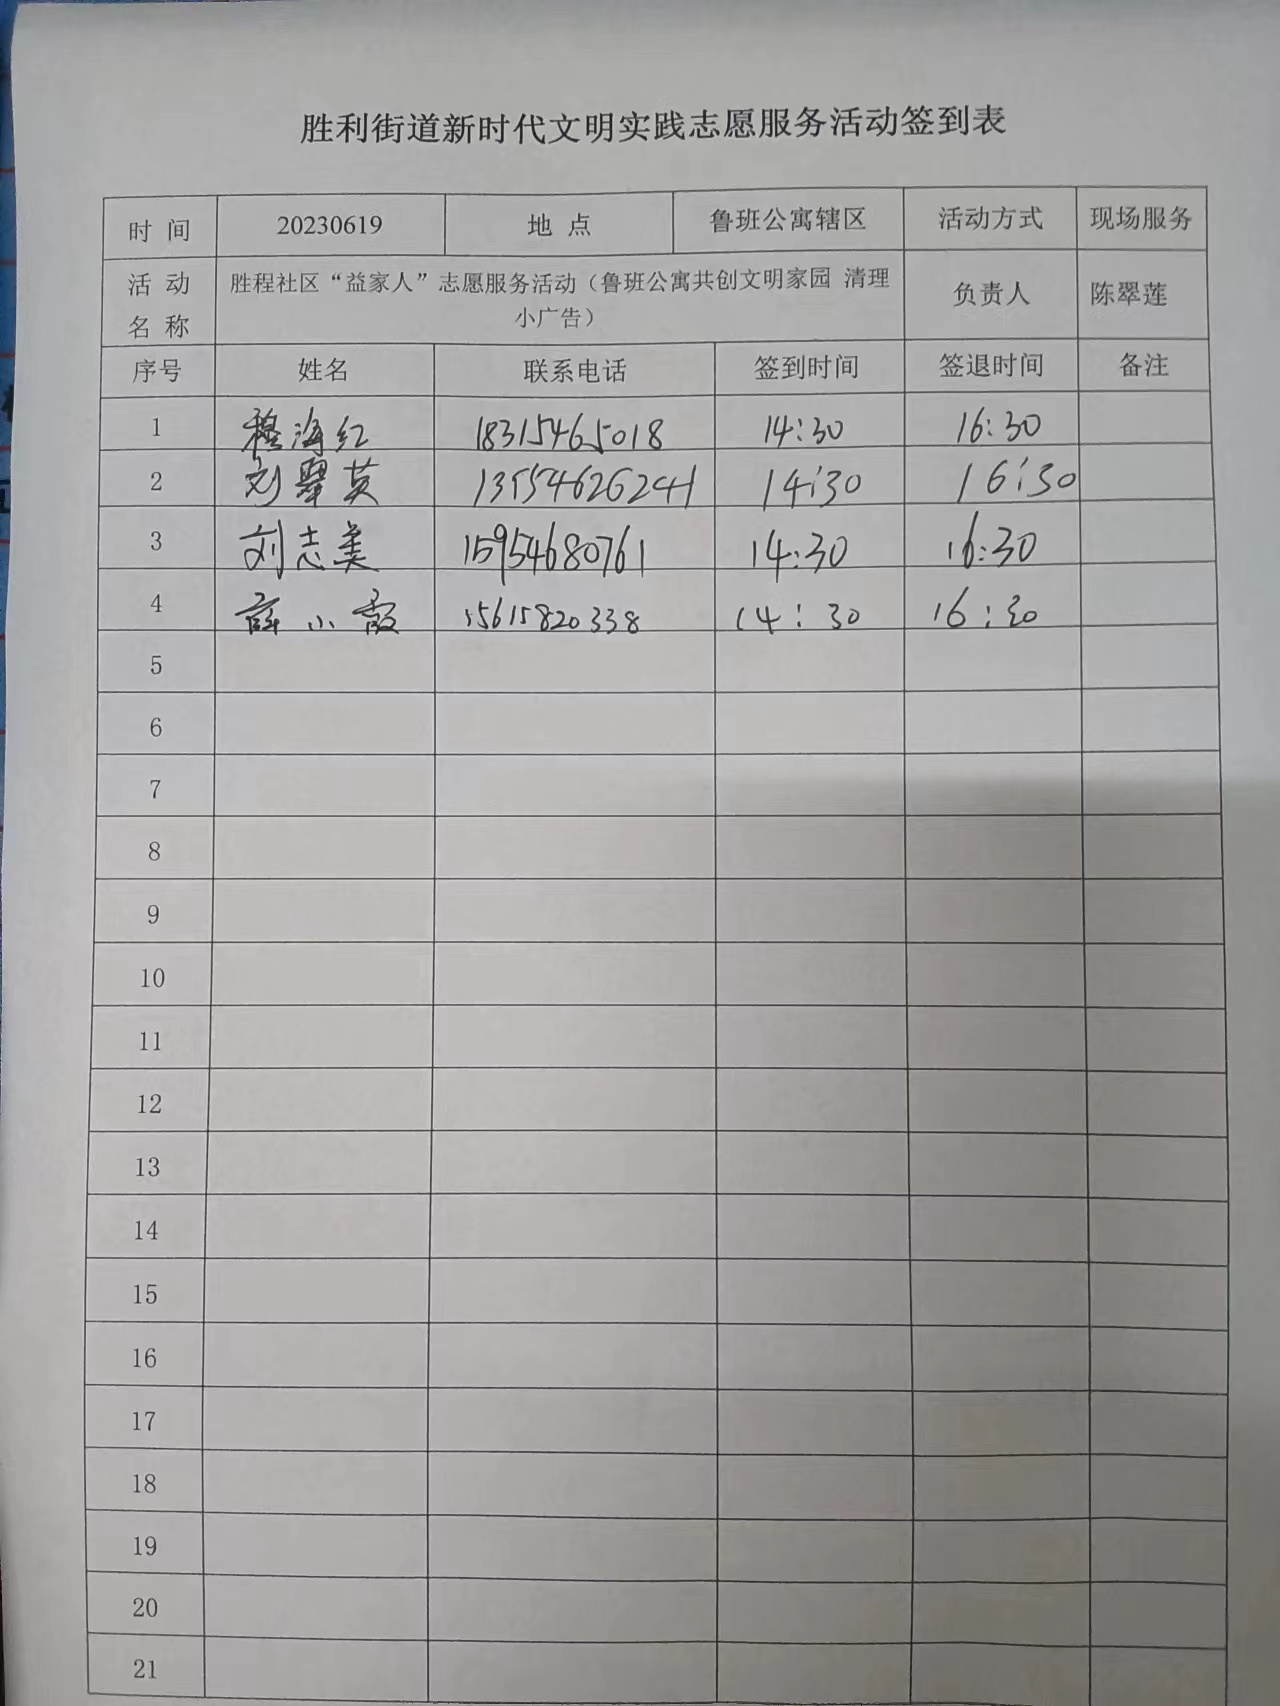 胜利街道新时代文明实践志愿服务活动签到表
时 间 20230619 地 点 鲁班公寓辖区 活动方式 现场服务
活 动 名 称 胜程社区“益家人”志愿服务活动（鲁班公寓共创文明家园 清理
小广告） 负责人 陈翠莲
序号 姓名 联系电话 签到时间 签退时间 备注
1 穆海红 18315465018 14:30 16:30
2 刘翠英 13554626241 14:30 16:30
3 刘志美 15954680761 14:30 16:30
4 薛小霞 15615820338 14:30 16:30
5
6
7
8
9
10
11
12
13
14
15
16
17
18
19
20
21